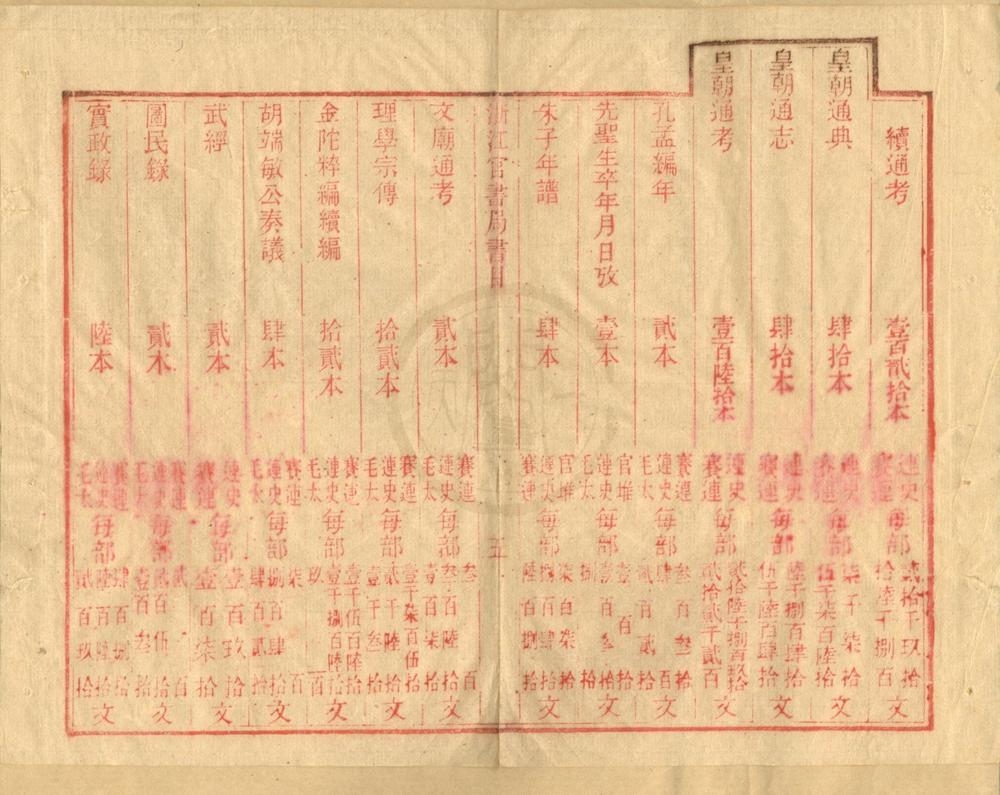 續通考 壹百貳拾本 連史 賽連 每部 貳拾千玖拾 拾陸千捌百 文
皇朝通典 肆拾本 連史 賽連 每部 柒千柒拾 伍千柒百陸拾 文
皇朝通志 肆拾本 連史 賽連 每部 陸千捌百肆拾 伍千陸百肆拾 文
皇朝通考 壹百陸拾本 連史 賽連 每部 貳拾陸千捌百玖拾 貳拾貳千貳百 文
孔孟編年 貳本 賽連 連史 毛太 每部 叁百叁拾 貳百貳拾 文
先聖生卒年月日攷 壹本 官堆 連史 毛太 每部 壹百叁拾 文
朱子年譜 肆本 官堆 連史 賽連 每部 柒百柒拾 捌百肆拾 陸百捌拾 文
浙江官書局書目 五
文廟通考 貳本 賽連 連史 毛太 每部 叁百 叁百陸拾 壹百柒拾 文
理學宗傳 拾貳本 賽連 連史 毛太 每部 壹千柒百伍拾 貳千陸拾 壹千叁拾 文
金陀粹編續編 拾貳本 賽連 連史 毛太 每部 壹千伍百陸拾 壹千捌百陸拾 玖百 文
胡端敏公奏議 肆本 賽連 連史 毛太 每部 柒百 捌百肆拾 肆百貳拾 文
武經 貳本 連史 賽連 每部 壹百玖拾 壹百柒拾 文
圖民錄 貳本 賽連 連史 毛太 每部 貳百 貳百伍拾 壹百叁拾 文
實政錄 陸本 賽連 連史 毛太 每部 肆百捌拾 陸百拾 貳百玖拾 文